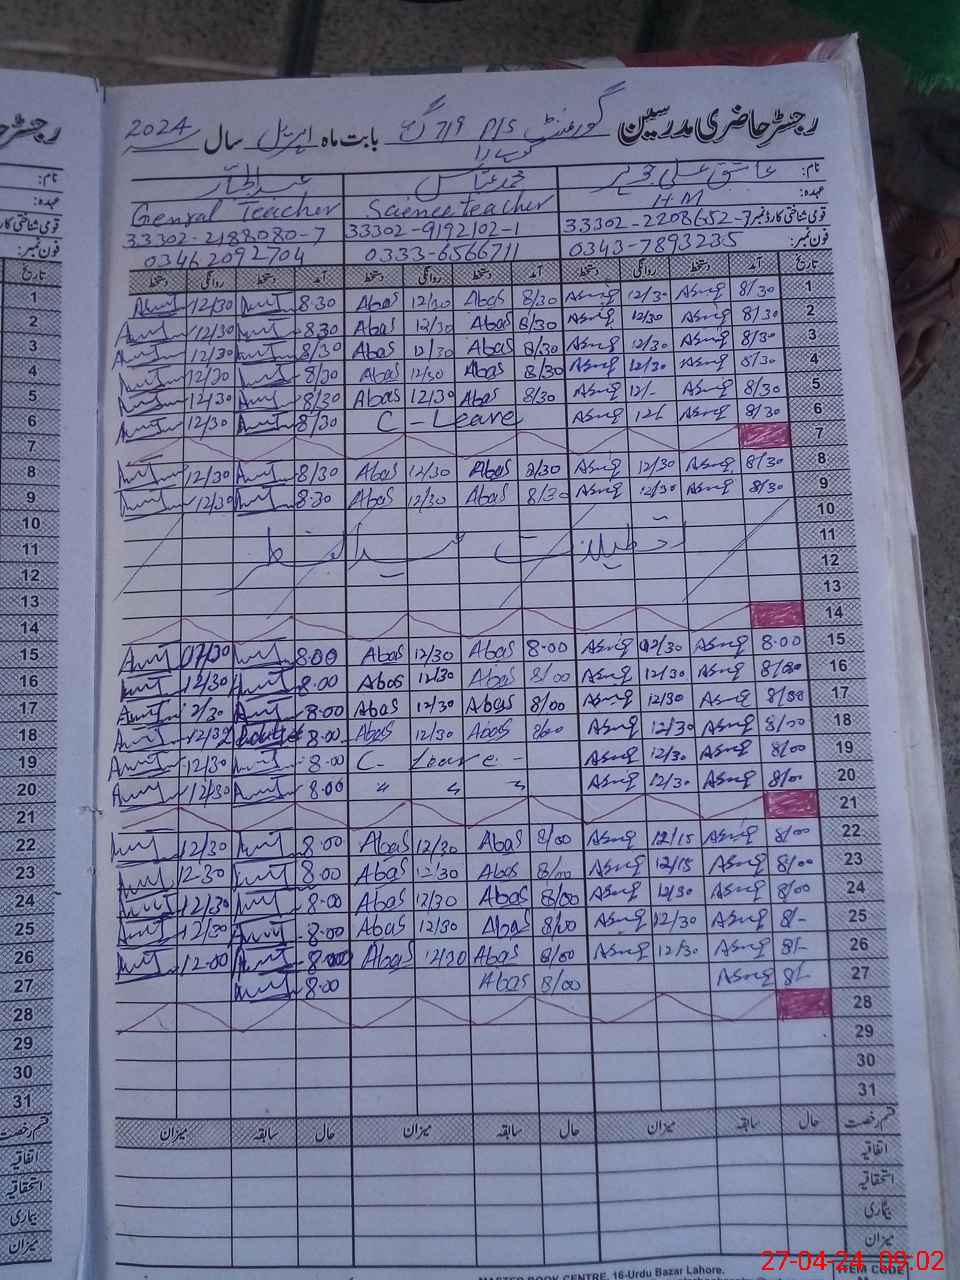 رجسٹر حاضری مدرسین گورنمنٹ P/S 719 گ ب بابت ماہ اپریل سال 2024
نام: عاشق علی محمد عباس عبدالجبار
عہدہ: H M Science teacher Genral Teacher
قومی شناختی کارڈ نمبر 33302-2208652-7 33302-9192102-1 33302-2188080-7
فون نمبر: 0343-7893235 0333-6566711 03462092704
تاریخ آمد دستخط روانگی دستخط آمد دستخط روانگی دستخط آمد دستخط روانگی دستخط تاریخ
1 8/30 Asmg 12/30 Asmg 8/30 Abas 12/30 Abas 8.30 12/30 1
2 8/30 Asmg 12/30 Asmg 8/30 Abas 12/30 Abas 8.30 12/30 2
3 8/30 Asmg 12/30 Asmg 8/30 Abas 12/30 Abas 8/30 12/30 3
4 8/30 Asmg 12/30 Asmg 8/30 Abas 12/30 Abas 8/30 12/30 4
5 8/30 Asmg 12/- Asmg 8/30 Abas 12/30 Abas 8/30 12/30 5
6 8/30 Asmg Asmg C - Leave 8/30 12/30 6
7 7
8 8/30 Asmg 12/30 Asmg 8/30 Abas 12/30 Abas 8/30 12/30 8
9 8/30 Asmg 12/30 Asmg 8/30 Abas 12/30 Abas 8.30 12/30 9
10 10
11 تعطیلات بسلسلہ عیدالفطر 11
12 12
13 13
14 14
15 8.00 Asmg 12/30 Asmg 8.00 Abas 12/30 Abas 8.00 15
16 8/00 Asmg 12/30 Asmg 8/00 Abas 12/30 Abas 8.00 12/30 16
17 8/00 Asmg 12/30 Asmg 8/00 Abas 12/30 Abas 8.00 12/30 17
18 8/00 Asmg 12/30 Asmg 8/00 Abas 12/30 Abas 8.00 12/30 18
19 8/00 Asmg 12/30 Asmg C- Leave - 8.00 12/30 19
20 8/00 Asmg 12/30 Asmg " " " 8.00 12/30 20
21 21
22 8/00 Asmg 12/15 Asmg 8/00 Abas 12/30 Abas 8.00 12/30 22
23 8/00 Asmg 12/15 Asmg 8/00 Abas 12/30 Abas 8.00 12.30 23
24 8/00 Asmg 12/30 Asmg 8/00 Abas 12/30 Abas 8.00 12/30 24
25 8/- Asmg 12/30 Asmg 8/00 Abas 12/30 Abas 8.00 12/30 25
26 8/- Asmg 12/30 Asmg 8/00 Abas Abas 8.00 12.00 26
27 8/- Asmg 8/00 Abas 8.00 27
28 28
29 29
30 30
31 31
قسم رخصت حال سابقہ میزان حال سابقہ میزان حال سابقہ میزان قسم رخصت
اتفاقیہ اتفاقیہ
استحقاقیہ استحقاقیہ
بیماری بیماری
میزان میزان
MASTER BOOK CENTRE, 16-Urdu Bazar Lahore. ITEM CODE
27-04-24 09:02